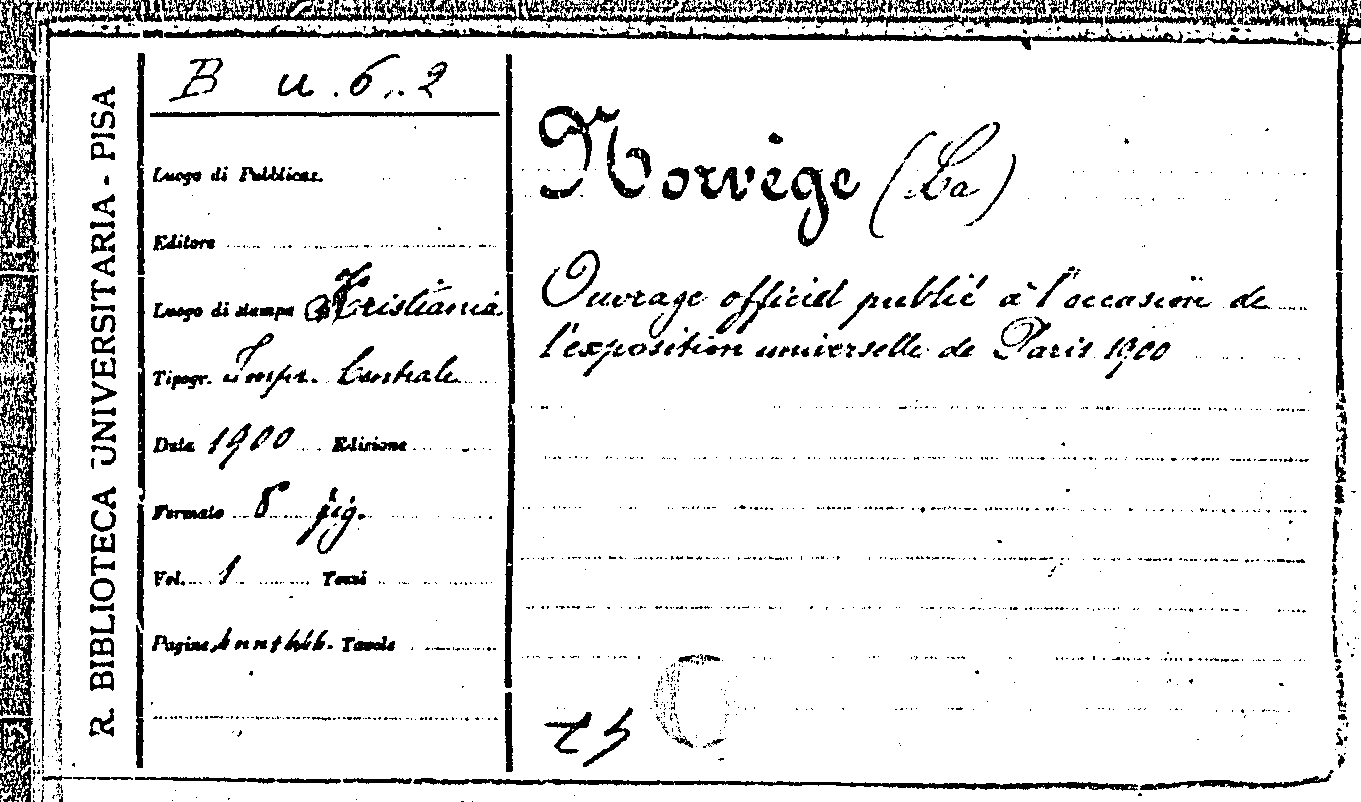 R. BIBLIOTECA UNIVERSITARIA - PISA
B u. 6.. 2
Luogo di Pubblicaz.
Editore
Luogo di stampa Kristiania
Tipogr. Impr. Centrale
Data 1900 Edizione
Formato 8° fig.
Vol. 1 Tomi
Pagine Tavole
Norvège (La)
Ouvrage officiel publié à l'occasion de
l'exposition universelle de Paris 1900